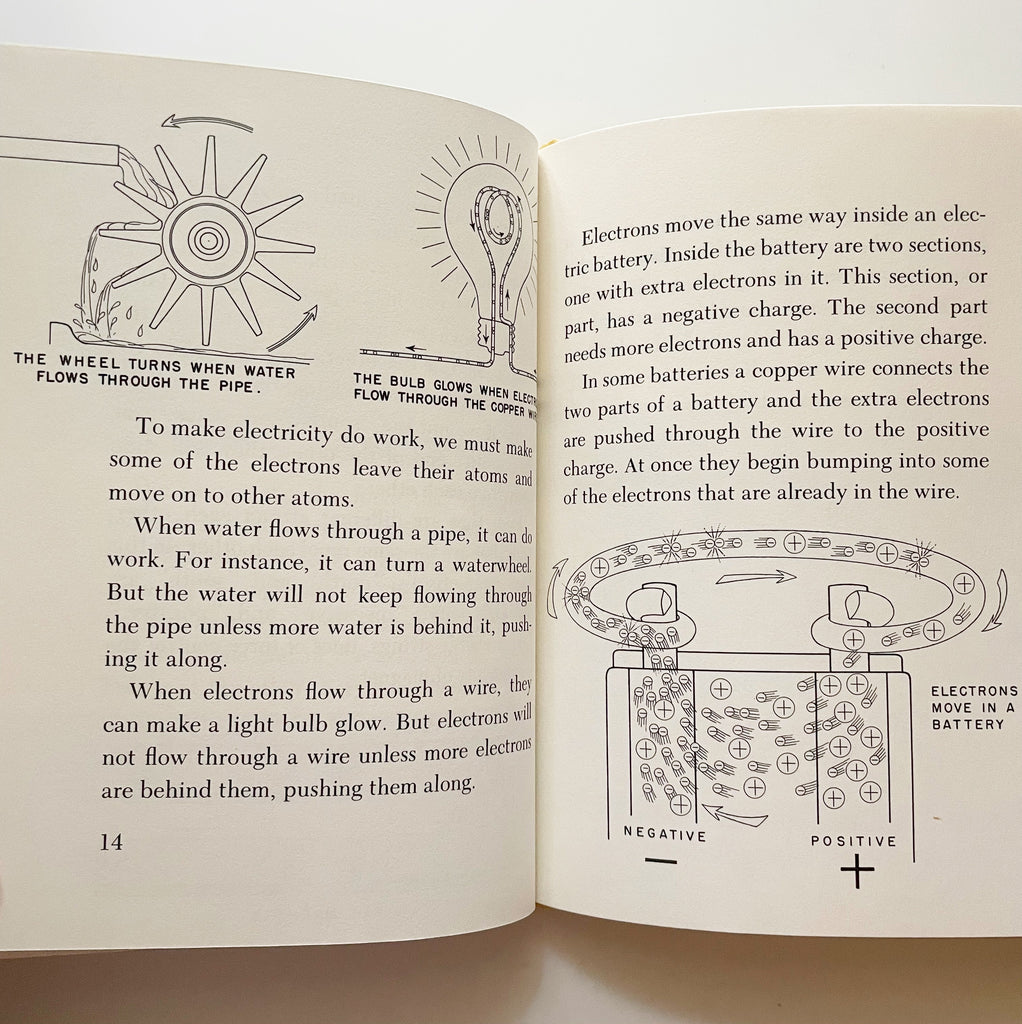 THE WHEEL TURNS WHEN WATER
FLOWS THROUGH THE PIPE.
THE BULB GLOWS WHEN
FLOW THROUGH THE COPPER
To make electricity do work, we must make
some of the electrons leave their atoms and
move on to other atoms.
When water flows through a pipe, it can do
work. For instance, it can turn a waterwheel.
But the water will not keep flowing through
the pipe unless more water is behind it, push-
ing it along.
When electrons flow through a wire, they
can make a light bulb glow. But electrons will
not flow through a wire unless more electrons
are behind them, pushing them along.
14
Electrons move the same way inside an elec-
tric battery. Inside the battery are two sections,
one with extra electrons in it. This section, or
part, has a negative charge. The second part
needs more electrons and has a positive charge.
In some batteries a copper wire connects the
two parts of a battery and the extra electrons
are pushed through the wire to the positive
charge. At once they begin bumping into some
of the electrons that are already in the wire.
ELECTRONS
MOVE IN A
BATTERY
NEGATIVE
−
POSITIVE
+